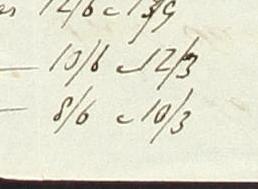 12/6 c 13/9
— 10/6 c 12/3
— 8/6 c 10/3